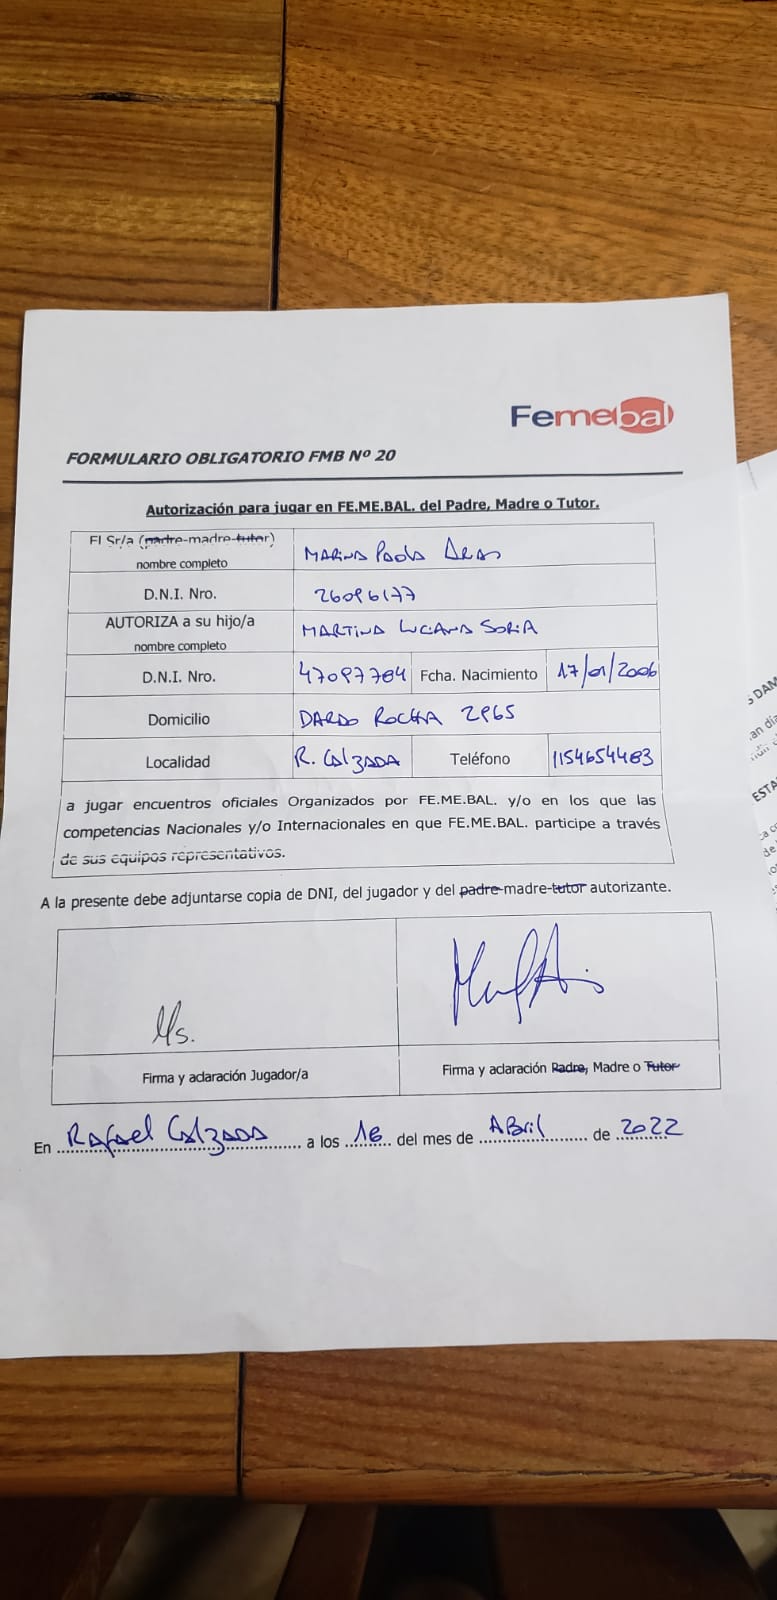 Femebal
FORMULARIO OBLIGATORIO FMB Nº 20
Autorización para jugar en FE.ME.BAL. del Padre, Madre o Tutor.
El Sr/a (padre-madre-tutor)
nombre completo
MARINA Paola
D.N.I. Nro.
26096177
AUTORIZA a su hijo/a
nombre completo
MARTINA LUCIANA SORIA
D.N.I. Nro.
47097784 Fcha. Nacimiento 17/01/2006
Domicilio
DARDO ROCHA 2965
Localidad
R. CALZADA Teléfono 1154654483
a jugar encuentros oficiales Organizados por FE.ME.BAL. y/o en los que las
competencias Nacionales y/o Internacionales en que FE.ME.BAL. participe a través
de sus equipos representativos.
A la presente debe adjuntarse copia de DNI, del jugador y del padre-madre-tutor autorizante.
Ms.
Firma y aclaración Jugador/a
Firma y aclaración Padre, Madre o Tutor
En Rafael CALZADA a los del mes de ABril de 2022
S DAM
ESTA